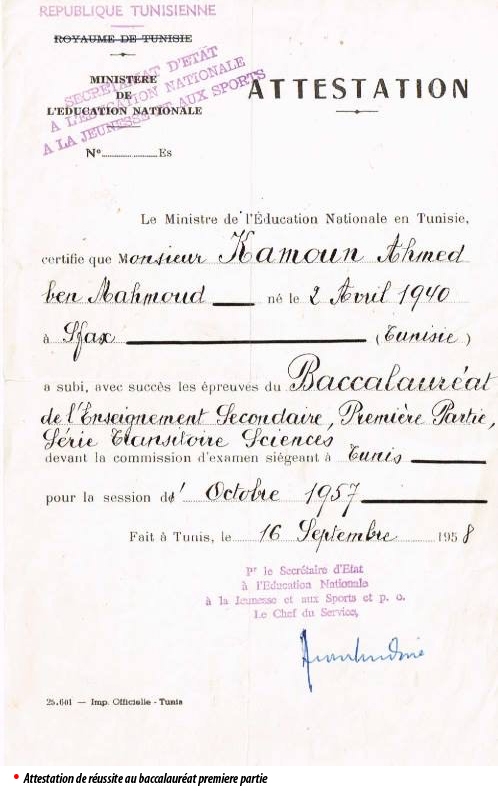 REPUBLIQUE TUNISIENNE
ROYAUME DE TUNISIE
MINISTÈRE
DE
L'EDUCATION NATIONALE
SECRETARIAT D'ETAT
A L'EDUCATION NATIONALE
A LA JEUNESSE ET AUX SPORTS
ATTESTATION
N° Es
Le Ministre de l'Éducation Nationale en Tunisie,
certifie que Monsieur Kamoun Ahmed
ben Mahmoud né le 2 Avril 1940
à Sfax (Tunisie)
a subi, avec succès les épreuves du Baccalauréat
de l'Enseignement Secondaire, Première Partie,
Série Transitoire Sciences
devant la commission d'examen siégeant à Tunis
pour la session d' Octobre 1957
Fait à Tunis, le 16 Septembre 1958
Pr le Secrétaire d'Etat
à l'Education Nationale
à la Jeunesse et aux Sports et p. o.
Le Chef du Service,
25.601 — Imp. Officielle - Tunis
• Attestation de réussite au baccalauréat premiere partie